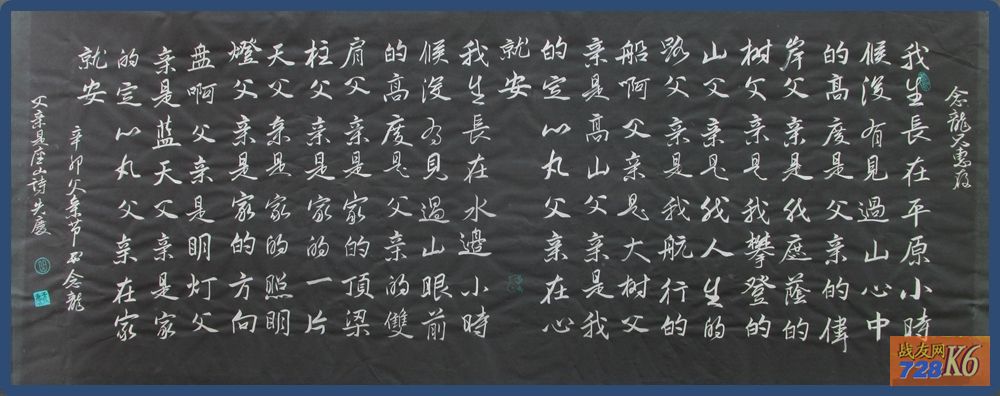 念龍兄惠存
我生長在平原小時
候沒有見過山心中
的高度是父亲的偉
岸父亲是我庇蔭的
树父亲是我攀登的
山父亲是我人生的
路父亲是我航行的
船啊父亲是大树父
亲是高山父亲是我
的定心丸父亲在心
就安
我生長在水邊小時
候沒有見過山眼前
的高度是父亲的雙
肩父亲是家的頂梁
柱父亲是家的一片
天父亲是家的照明
燈父亲是家的方向
盘啊父亲是明灯父
亲是蓝天父亲是家
的定心丸父亲在家
就安
辛卯父亲节 念龍
父亲是座山詩
战友网
728 K6